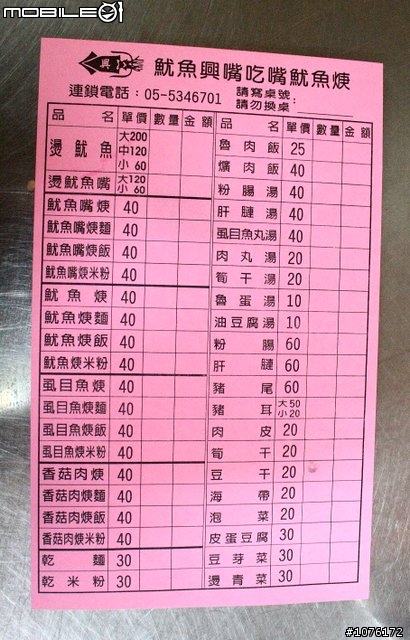 MOBILE01
興
魷魚興嘴吃嘴魷魚焿
連鎖電話：05-5346701
請寫桌號：
請勿換桌
品名 單價 數量 金額
燙魷魚 大200 中120 小60
燙魷魚嘴 大120 小60
魷魚嘴焿 40
魷魚嘴焿麵 40
魷魚嘴焿飯 40
魷魚嘴焿米粉 40
魷魚焿 40
魷魚焿麵 40
魷魚焿飯 40
魷魚焿米粉 40
虱目魚焿 40
虱目魚焿麵 40
虱目魚焿飯 40
虱目魚焿米粉 40
香菇肉焿 40
香菇肉焿麵 40
香菇肉焿飯 40
香菇肉焿米粉 40
乾麵 30
乾米粉 30
品名 單價 數量 金額
魯肉飯 25
爌肉飯 40
粉腸湯 40
肝膥湯 40
虱目魚丸湯 40
肉丸湯 20
筍干湯 20
魯蛋湯 10
油豆腐湯 10
粉腸 60
肝膥 60
豬尾 60
豬耳 大50 小20
肉皮 20
筍干 20
豆干 20
海帶 20
泡菜 20
皮蛋豆腐 30
豆芽菜 30
燙青菜 30
#1076172